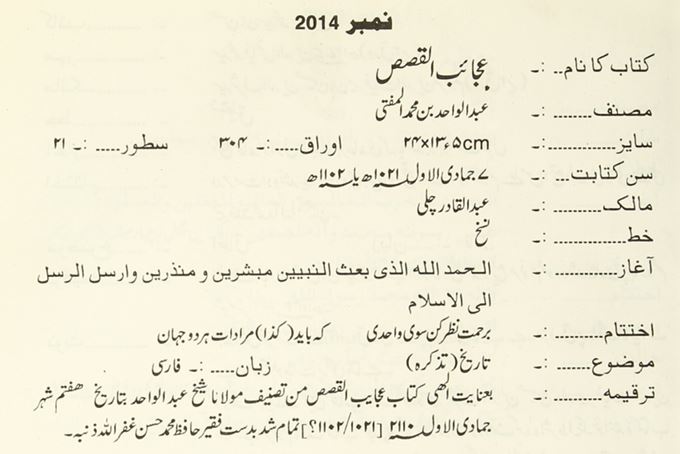 نمبر 2014
کتاب کا نام.. :۔ عجائب القصص
مصنف........ :۔ عبدالواحد بن محمد المفتی
سایز............:۔ ۲۴x۱۳ء۵cm اوراق.....:۔ ۳۰۴ سطور.....:۔ ۲۱
سن کتابت... :۔ ۷ جمادی الاول ۱۰۲۱ھ یا ۱۱۰۲ھ
مالک.......... :۔ عبدالقادر چلی
خط.............. :۔ نسخ
آغاز............ :۔ الحمد الله الذی بعث النبیین مبشرین و منذرین وارسل الرسل
الی الاسلام
اختتام.......... :۔ برحمت نظر کن سوی واحدی که باید (کذا) مرادات هر دو جهان
موضوع....... :۔ تاریخ (تذکره) زبان.....:۔ فارسی
ترقیمه......... :۔ بعنایت الٰهی کتاب عجایب القصص من تصنیف مولانا شیخ عبدالواحد بتاریخ هفتم شهر
جمادی الاول ۲۱۱۰ [۱۱۰۲/۱۰۲۱؟] تمام شد بدست فقیر حافظ محمد حسن غفر الله ذنبه۔